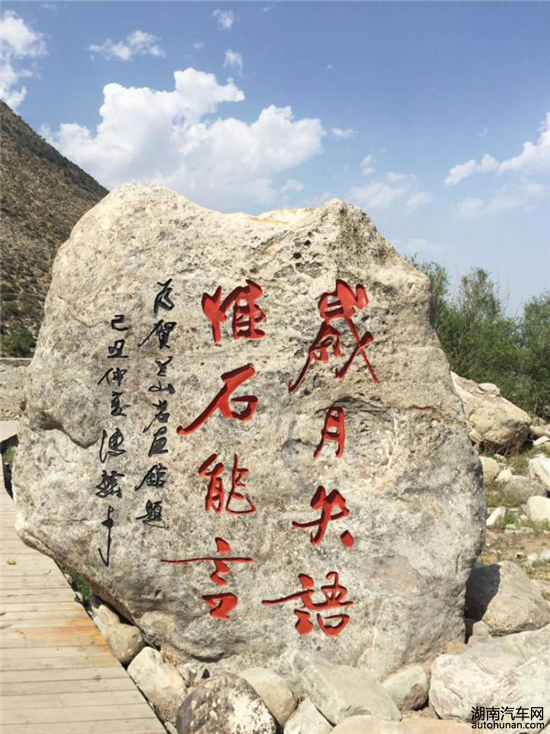 歲月失語
惟石能言
为賀兰山岩画館題
己丑仲夏馮骥才
湖南汽车网
autohunan.com